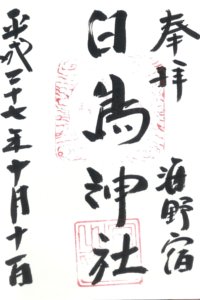 奉拝
海野宿
白鳥神社
平成二十七年十月十一日